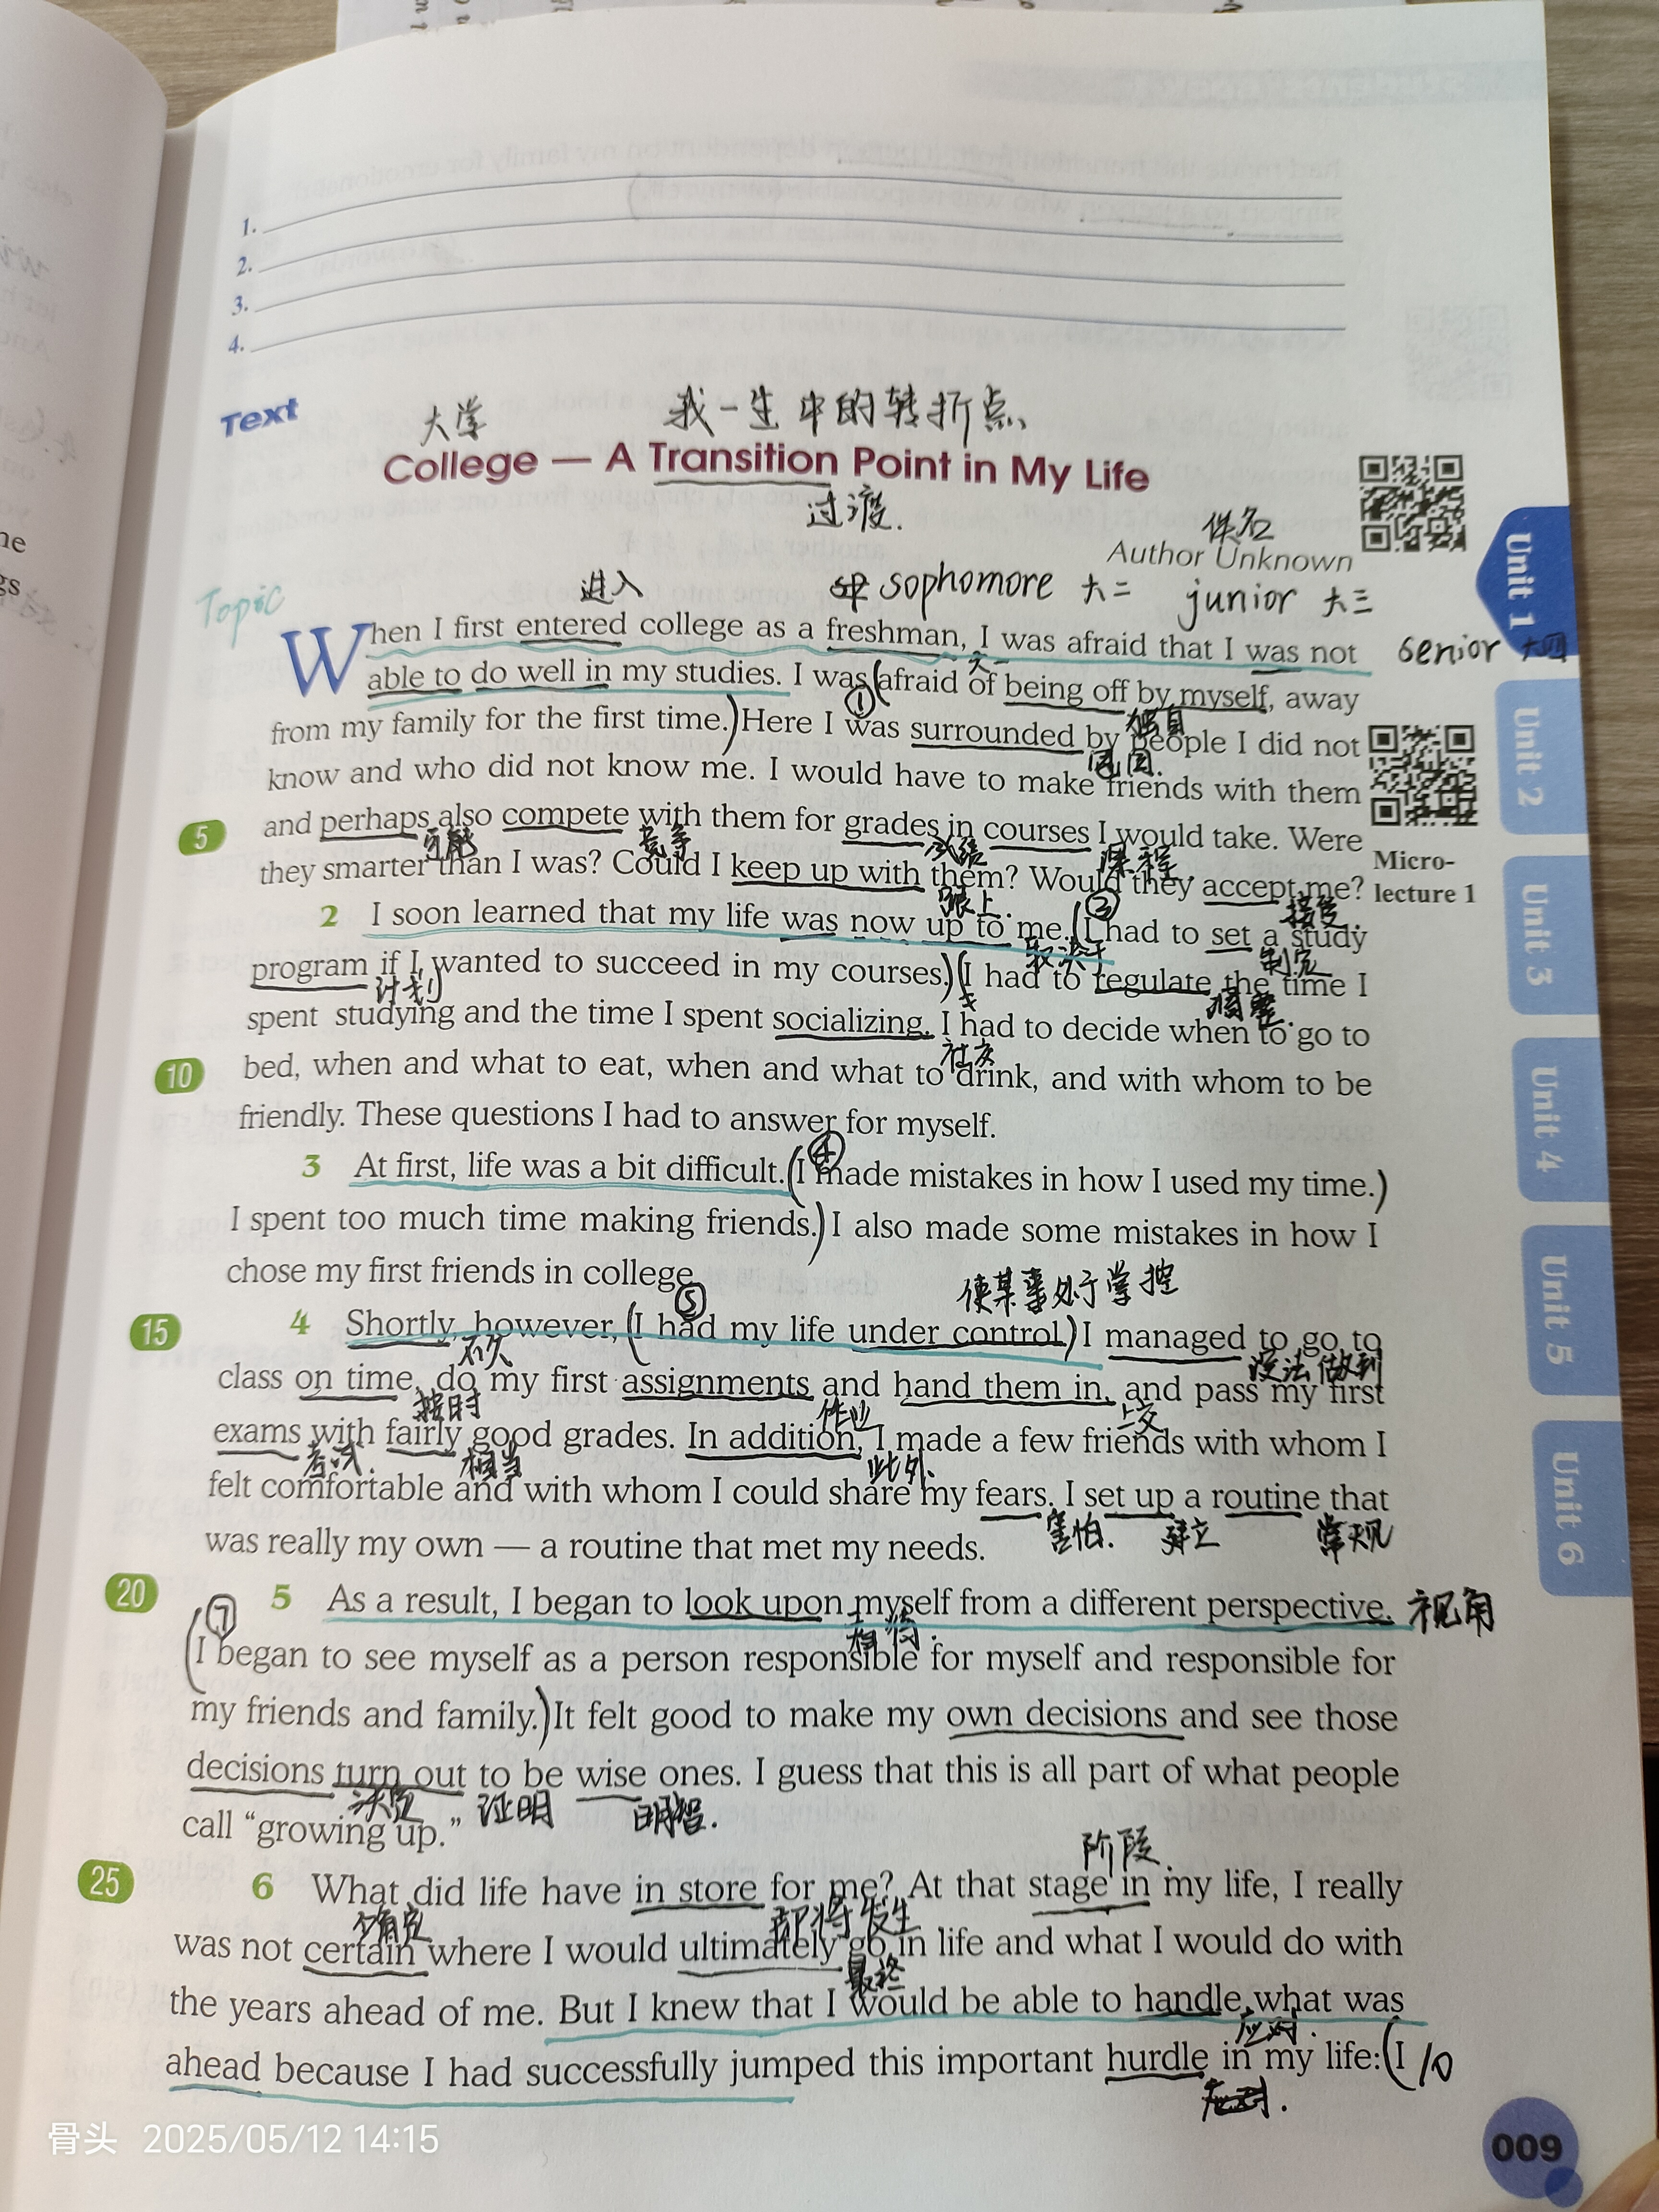 1.
2.
3.
4.
Text
大学 我一生中的转折点
College — A Transition Point in My Life
过渡.
佚名
Author Unknown
Topic
进入 sophomore 大二 junior 大三
When I first entered college as a freshman, I was afraid that I was not
senior 大四
大一
able to do well in my studies. I was afraid of being off by myself, away
①
独自
from my family for the first time. Here I was surrounded by people I did not
包围.
know and who did not know me. I would have to make friends with them
5
and perhaps also compete with them for grades in courses I would take. Were
可能 竞争 成绩 课程.
they smarter than I was? Could I keep up with them? Would they accept me?
Micro-
lecture 1
跟上. ② 接受.
2 I soon learned that my life was now up to me. (I had to set a study
取决于 制定
program if I wanted to succeed in my courses.) (I had to regulate the time I
计划 调整.
spent studying and the time I spent socializing. I had to decide when to go to
社交
10
bed, when and what to eat, when and what to drink, and with whom to be
friendly. These questions I had to answer for myself.
④
3 At first, life was a bit difficult. (I made mistakes in how I used my time.)
I spent too much time making friends.) I also made some mistakes in how I
chose my first friends in college.
⑤ 使某事处于掌控
15
4 Shortly, however, (I had my life under control.) I managed to go to
不久 设法做到
class on time, do my first assignments and hand them in, and pass my first
按时 作业 上交
exams with fairly good grades. In addition, I made a few friends with whom I
考试. 相当 此外.
felt comfortable and with whom I could share my fears. I set up a routine that
害怕. 建立 常规
was really my own — a routine that met my needs.
20
⑦
5 As a result, I began to look upon myself from a different perspective. 视角
看待.
(I began to see myself as a person responsible for myself and responsible for
my friends and family.) It felt good to make my own decisions and see those
decisions turn out to be wise ones. I guess that this is all part of what people
决定 证明 明智.
call “growing up.”
阶段.
25
6 What did life have in store for me? At that stage in my life, I really
确定 即将发生
was not certain where I would ultimately go in life and what I would do with
最终
the years ahead of me. But I knew that I would be able to handle what was
应对.
ahead because I had successfully jumped this important hurdle in my life: (I 10
Unit 1
Unit 2
Unit 3
Unit 4
Unit 5
Unit 6
009
骨头 2025/05/12 14:15